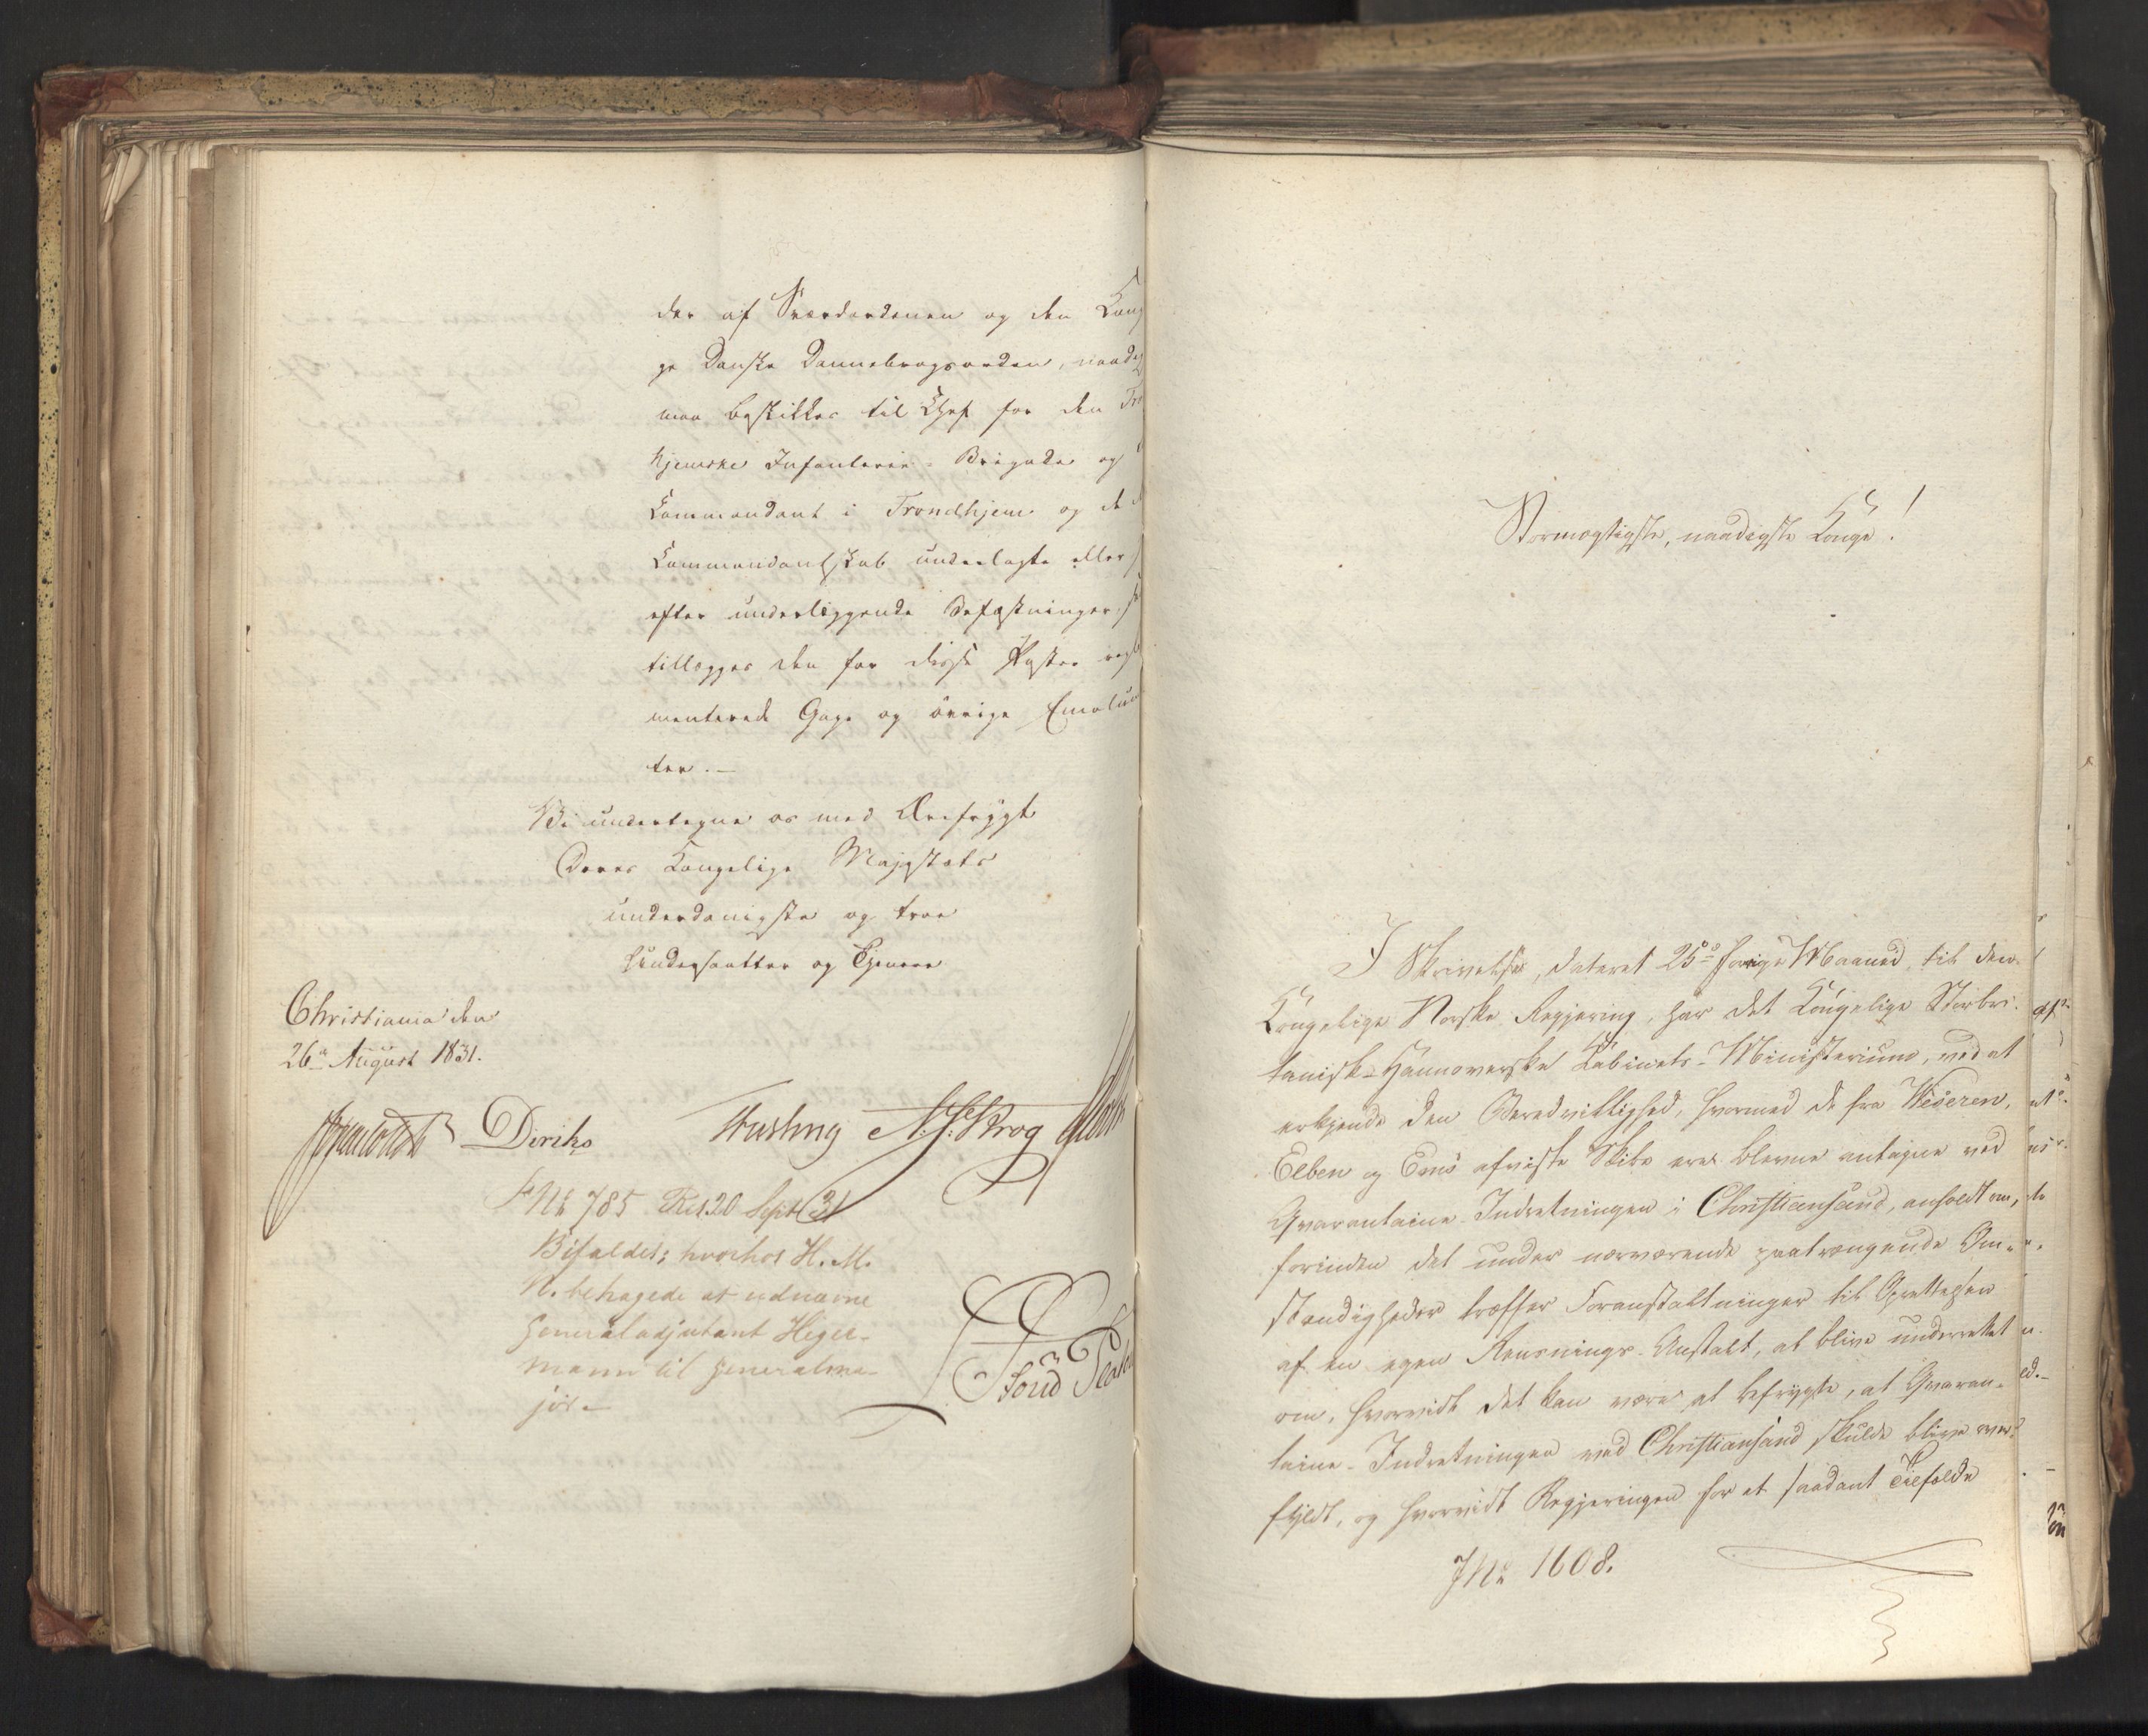 der af Sværdordenen og den Kong
ge Danske Dannebrogsorden, naadig
maa beskikkes til Chef for den Tro
hjemske Infanterie-Brigade og
Commandant i Trondhjem og de
Commandantskab underlagte eller
efter underliggende Befæstninger,
tillægges den for disse Poster regle
menterede Gage og övrige Emolu
ter.-
Vi undertegne os med Ærefrygt
Deres Kongelige Majestæts
underdanigste og troe
Undersaatter og Tjenere
Christiania den
26de August 1831.
Diriks N. J. Krog
F No 785 Res. 20 Sept 31
Bifaldet; hvorhos H. M.
N. behagede at udnævne
Generaladjutant Heger-
mann til Generalma-
jor.-
Stormægtigste, naadigste Konge!
I Skrivelse, dateret 25de forrige Maaned, til den
Kongelige Norske Regjering, har det Kongelige Storbri-
tanisk-Hannoverske Kabinets-Ministerium, ved at
erkjende den Beredvillighed, hvormed de fra Weseren,
Elben og Ems afviste Skibe ere blevne antagne ved
Qvarantaine-Indretningen i Christiansand, anholdt om,
forinden det under nærværende paatrængende Om-
stændigheder træffer Foranstaltninger til Oprettelsen
af en egen Rensnings-Anstalt, at blive underrettet
om, hvorvidt det kan være at befrygte, at Qvaran-
taine-Indretningen ved Christiansand skulde blive over-
fyldt, og hvorvidt Regjeringen for et saadant Tilfælde
JNo 1608.